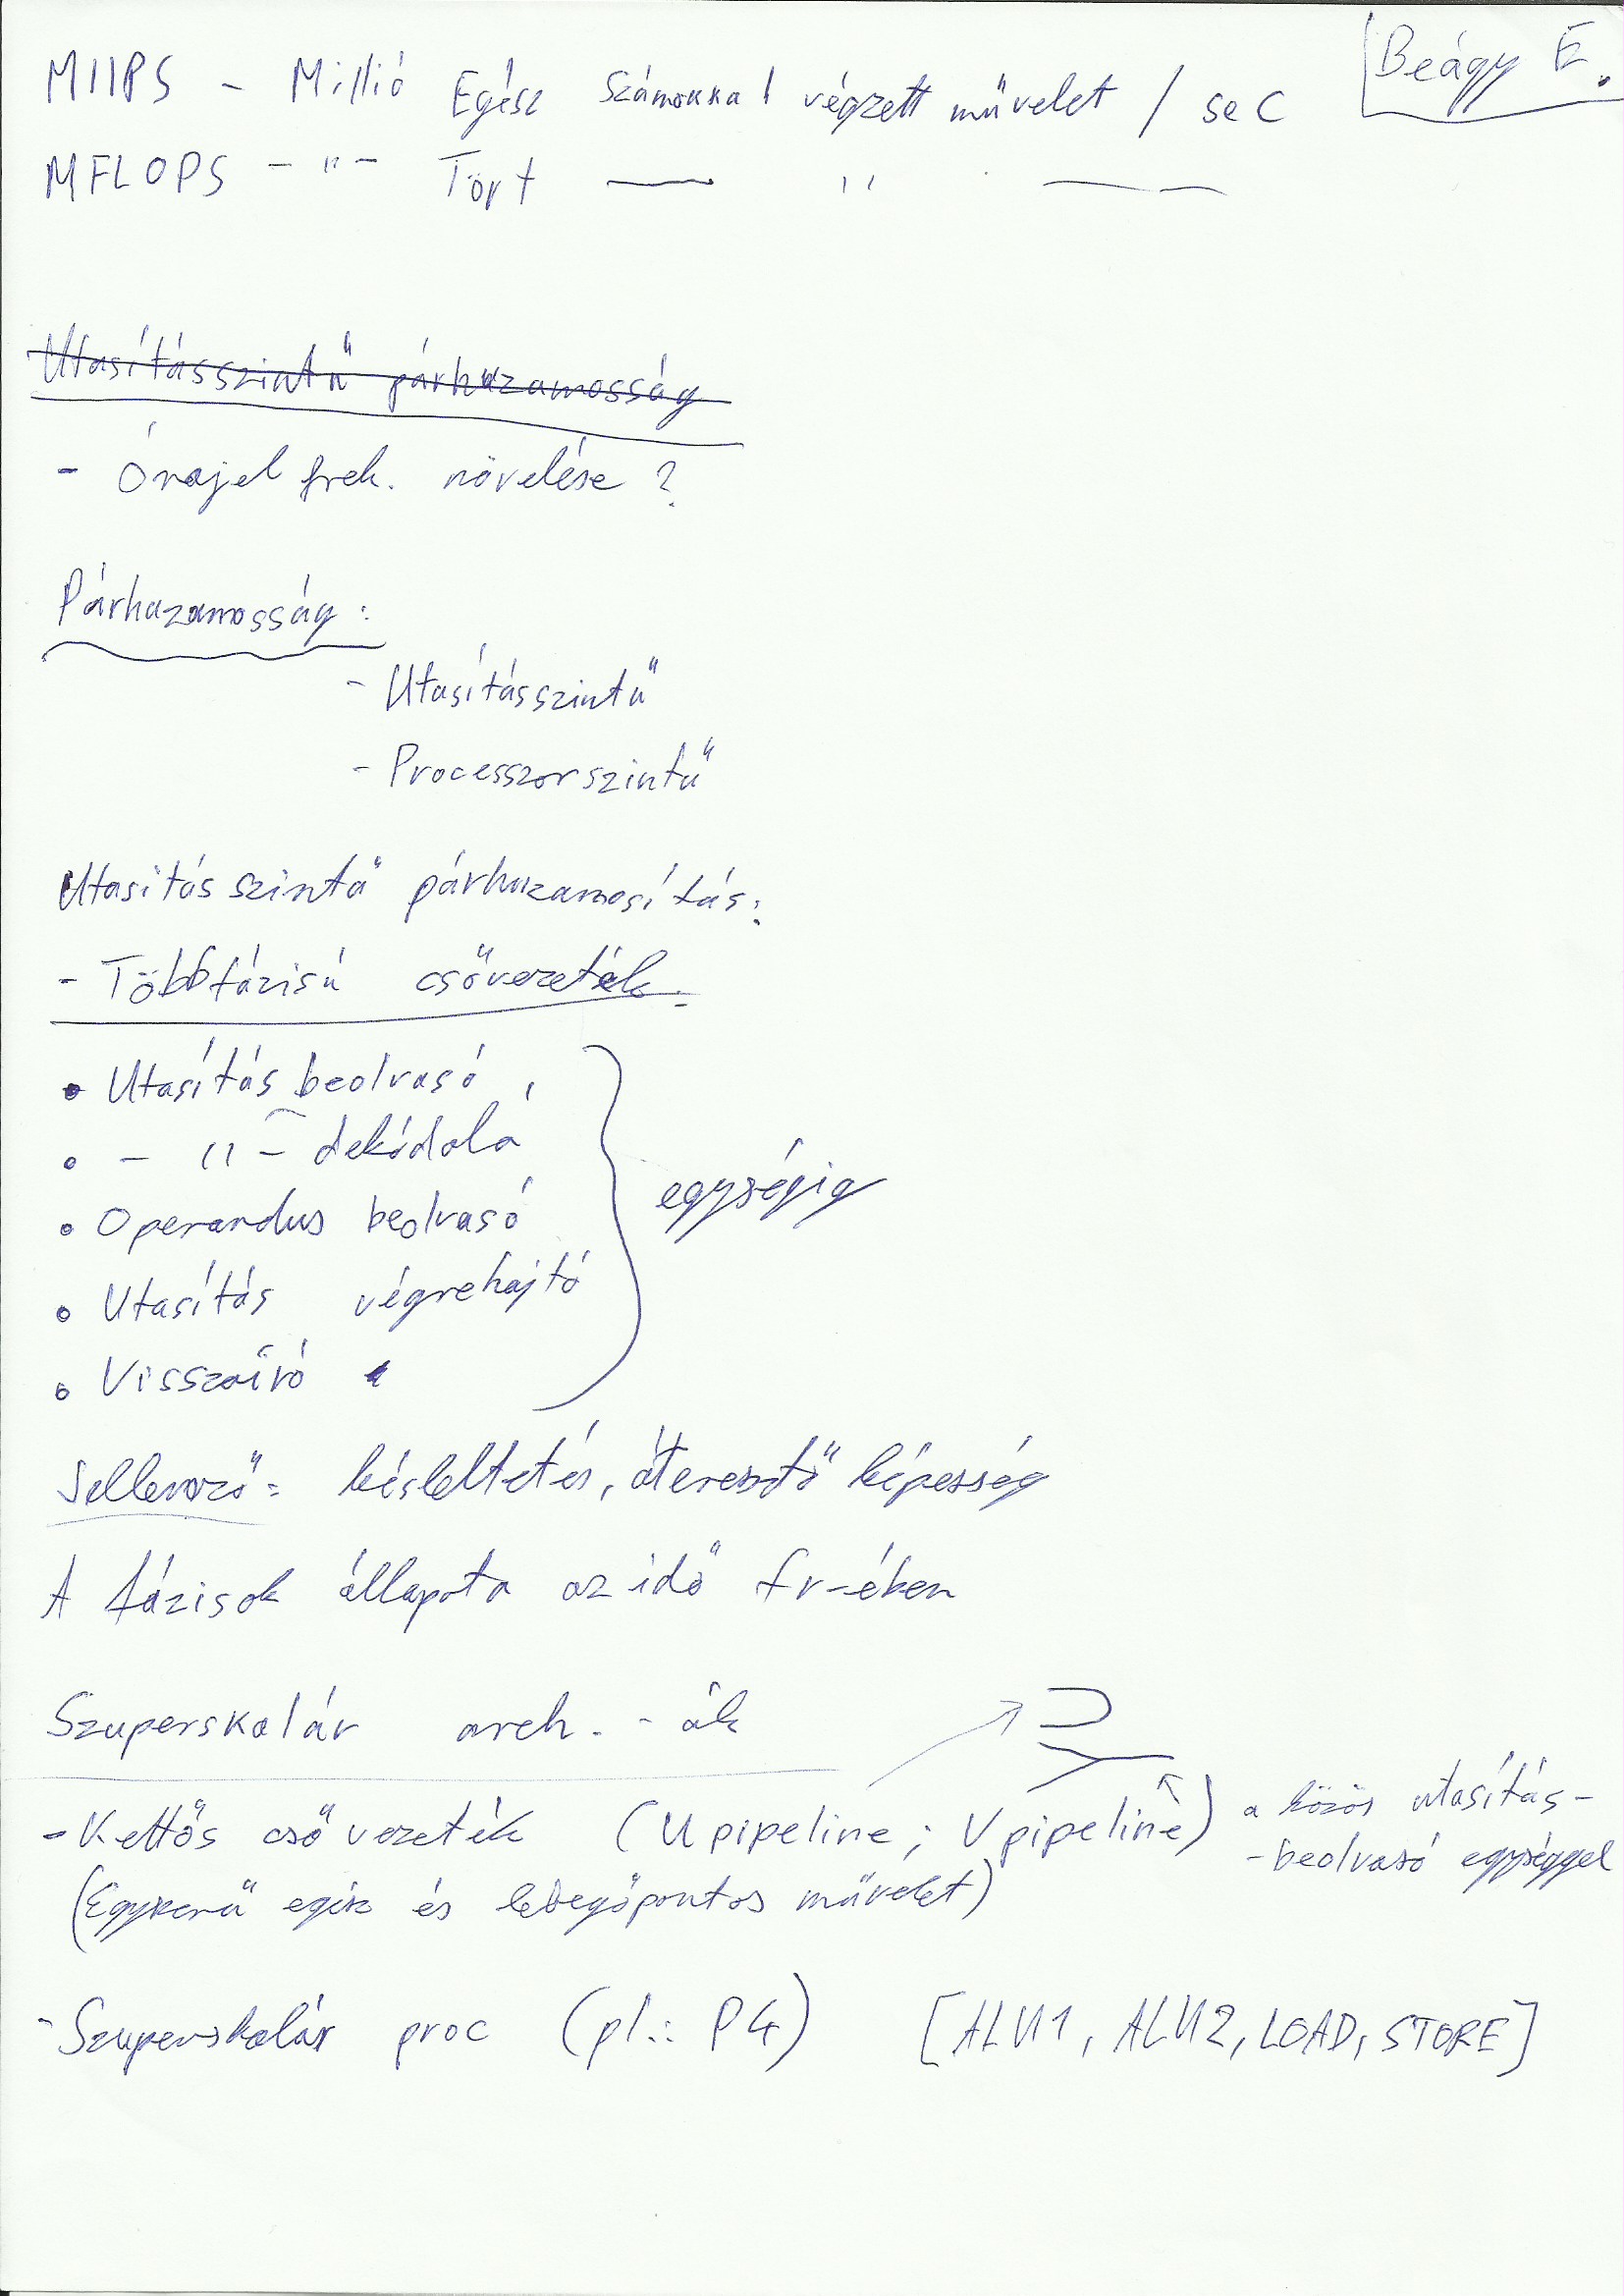 Beágy E.
MIIPS - Millió Egész Számokkal végzett művelet / sec
MFLOPS - " - Tört — " —
Utasításszintű párhuzamosság
- Órajel frek. növelése?
Párhuzamosság:
- Utasításszintű
- Processzorszintű
Utasításszintű párhuzamosítás:
- Többfázisú csővezeték:
• Utasítás beolvasó
• - " - dekódoló
• Operandus beolvasó
• Utasítás végrehajtó
• Visszaíró
egységig
Jellemző: késleltetés, áteresztő képesség
A fázisok állapota az idő fv-ében
Szuperskalár arch. - ák
- Kettős csővezeték (U pipeline; V pipeline) a közös utasítás-
-beolvasó egységgel
(Egyszerű egész és lebegőpontos művelet)
- Szuperskalár proc (pl.: P4) [ALU1, ALU2, LOAD, STORE]